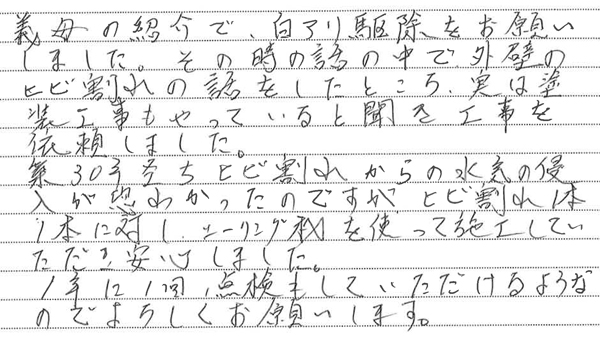 義母の紹介で、白アリ駆除をお願い
しました。その時の話の中で外壁の
ヒビ割れの話をしたところ、実は塗
装工事もやっていると聞き工事を
依頼しました。
築30年立ちヒビ割れからの水気の侵
入が恐わかったのですが、ヒビ割れ1本
1本に対し、シーリング剤を使って施工してい
ただき安心しました。
1年に1回、点検もしていただけるような
のでよろしくお願いします。